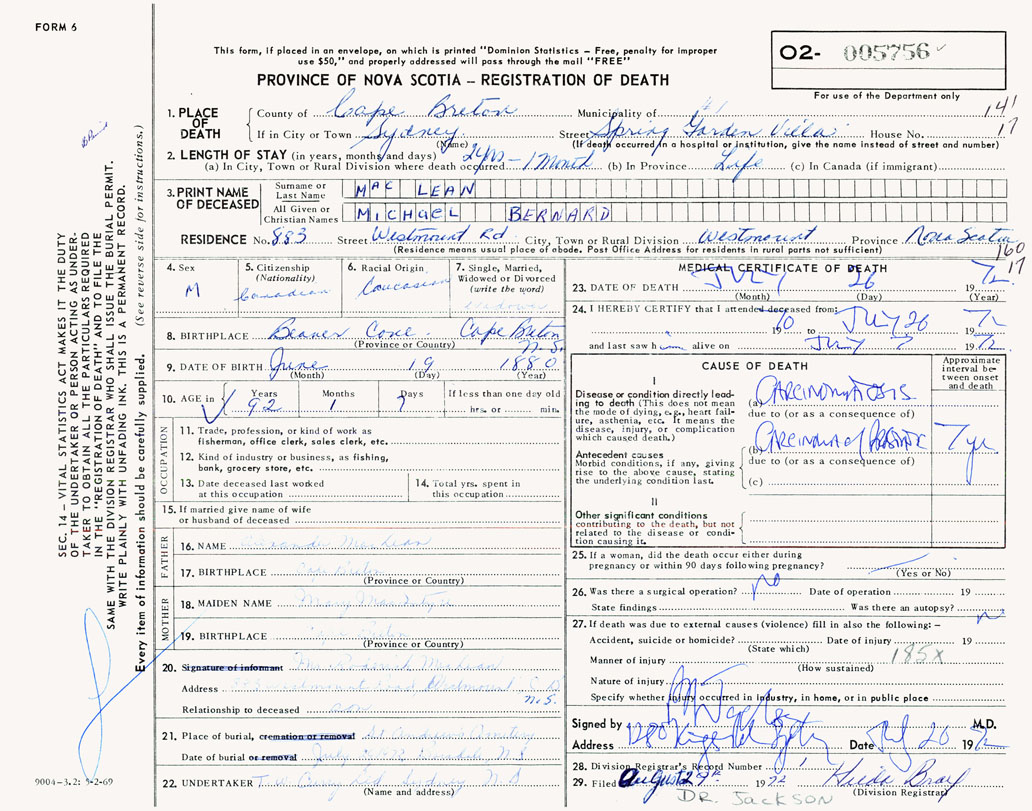 FORM 6
This form, if placed in an envelope, on which is printed "Dominion Statistics – Free, penalty for improper
use $50," and properly addressed will pass through the mail "FREE"
PROVINCE OF NOVA SCOTIA – REGISTRATION OF DEATH
02- 005756
For use of the Department only
141
17
1. PLACE OF DEATH
County of Cape Breton Municipality of #1
If in City or Town Sydney Street Spring Garden Villa House No.
(Name) (If death occurred in a hospital or institution, give the name instead of street and number)
2. LENGTH OF STAY (in years, months and days) 2 yrs – 1 Month Life
(a) In City, Town or Rural Division where death occurred (b) In Province (c) In Canada (if immigrant)
3. PRINT NAME OF DECEASED
Surname or Last Name MAC LEAN
All Given or Christian Names MICHAEL BERNARD
RESIDENCE No. 883 Street Westmount Rd City, Town or Rural Division Westmount Province Nova Scotia
(Residence means usual place of abode. Post Office Address for residents in rural parts not sufficient)
160
17
4. Sex
M
5. Citizenship
(Nationality)
Canadian
6. Racial Origin
Caucasian
7. Single, Married,
Widowed or Divorced
(write the word)
widowed
8. BIRTHPLACE Beaver Cove - Cape Breton
(Province or Country) N.S.
9. DATE OF BIRTH June 19 1880
(Month) (Day) (Year)
10. AGE in
Years Months Days If less than one day old
92 1 7 hrs. or min.
OCCUPATION
11. Trade, profession, or kind of work as
fisherman, office clerk, sales clerk, etc.
12. Kind of industry or business, as fishing,
bank, grocery store, etc.
13. Date deceased last worked
at this occupation
14. Total yrs. spent in
this occupation
15. If married give name of wife
or husband of deceased
FATHER
16. NAME Alexander MacLean
17. BIRTHPLACE Cape Breton
(Province or Country)
MOTHER
18. MAIDEN NAME Mary MacIntyre
19. BIRTHPLACE Cape Breton
(Province or Country)
20. Signature of informant Mr. Roderick MacLean
Address 883 Westmount Road Westmount C.B.
N.S.
Relationship to deceased son
21. Place of burial, cremation or removal St Cemetery
Date of burial or removal July N.S
22. UNDERTAKER T.W. Curry Sydney N.S
(Name and address)
MEDICAL CERTIFICATE OF DEATH
23. DATE OF DEATH JULY 26 1972
(Month) (Day) (Year)
24. I HEREBY CERTIFY that I attended deceased from:
1970 to JULY 26 1972
and last saw him alive on JULY 7 1972
CAUSE OF DEATH
Approximate interval between onset and death
I
Disease or condition directly leading
to death (This does not mean
the mode of dying, e.g., heart failure,
asthenia, etc. It means the
disease, injury, or complication
which caused death.)
(a) CARCINOMATOSIS
due to (or as a consequence of)
(b) CARCINOMA of PROSTATE 7 yr
due to (or as a consequence of)
Antecedent causes
Morbid conditions, if any, giving
rise to the above cause, stating
the underlying condition last.
(c)
II
Other significant conditions
contributing to the death, but not
related to the disease or condition
causing it.
25. If a woman, did the death occur either during
pregnancy or within 90 days following pregnancy?
(Yes or No)
26. Was there a surgical operation? no Date of operation 19
State findings Was there an autopsy? no
27. If death was due to external causes (violence) fill in also the following: –
Accident, suicide or homicide? Date of injury 19
(State which)
185X
Manner of injury
(How sustained)
Nature of injury
Specify whether injury occurred in industry, in home, or in public place
Signed by M.D.
Address 1280 Kings Rd Sydney Date July 26 1972
28. Division Registrar's Record Number
29. Filed August 29th 1972 Hilda Bray
(Division Registrar)
DR. JACKSON
SEC. 14 – VITAL STATISTICS ACT MAKES IT THE DUTY
OF THE UNDERTAKER OR PERSON ACTING AS UNDER-
TAKER TO OBTAIN ALL THE PARTICULARS REQUIRED
IN THE "REGISTRATION OF DEATH" AND TO FILE THE
SAME WITH THE DIVISION REGISTRAR WHO SHALL ISSUE THE BURIAL PERMIT.
WRITE PLAINLY WITH UNFADING INK. THIS IS A PERMANENT RECORD.
Every item of information should be carefully supplied. (See reverse side for instructions.)
9004-3.2: 9-2-69